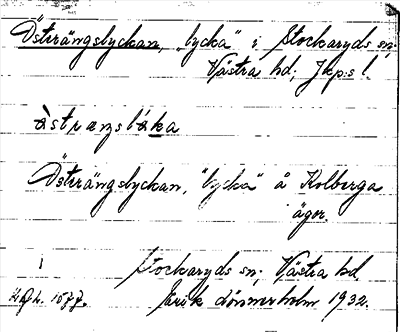 Österängslyckan, "lycka" i Stockaryds sn;
Västra hd, Jkp:s l.
Österängslyckan, "lycka" å Kolberga
ägor.
i Stockaryds sn; Västra hd.
Erik Lönnerholm 1932.